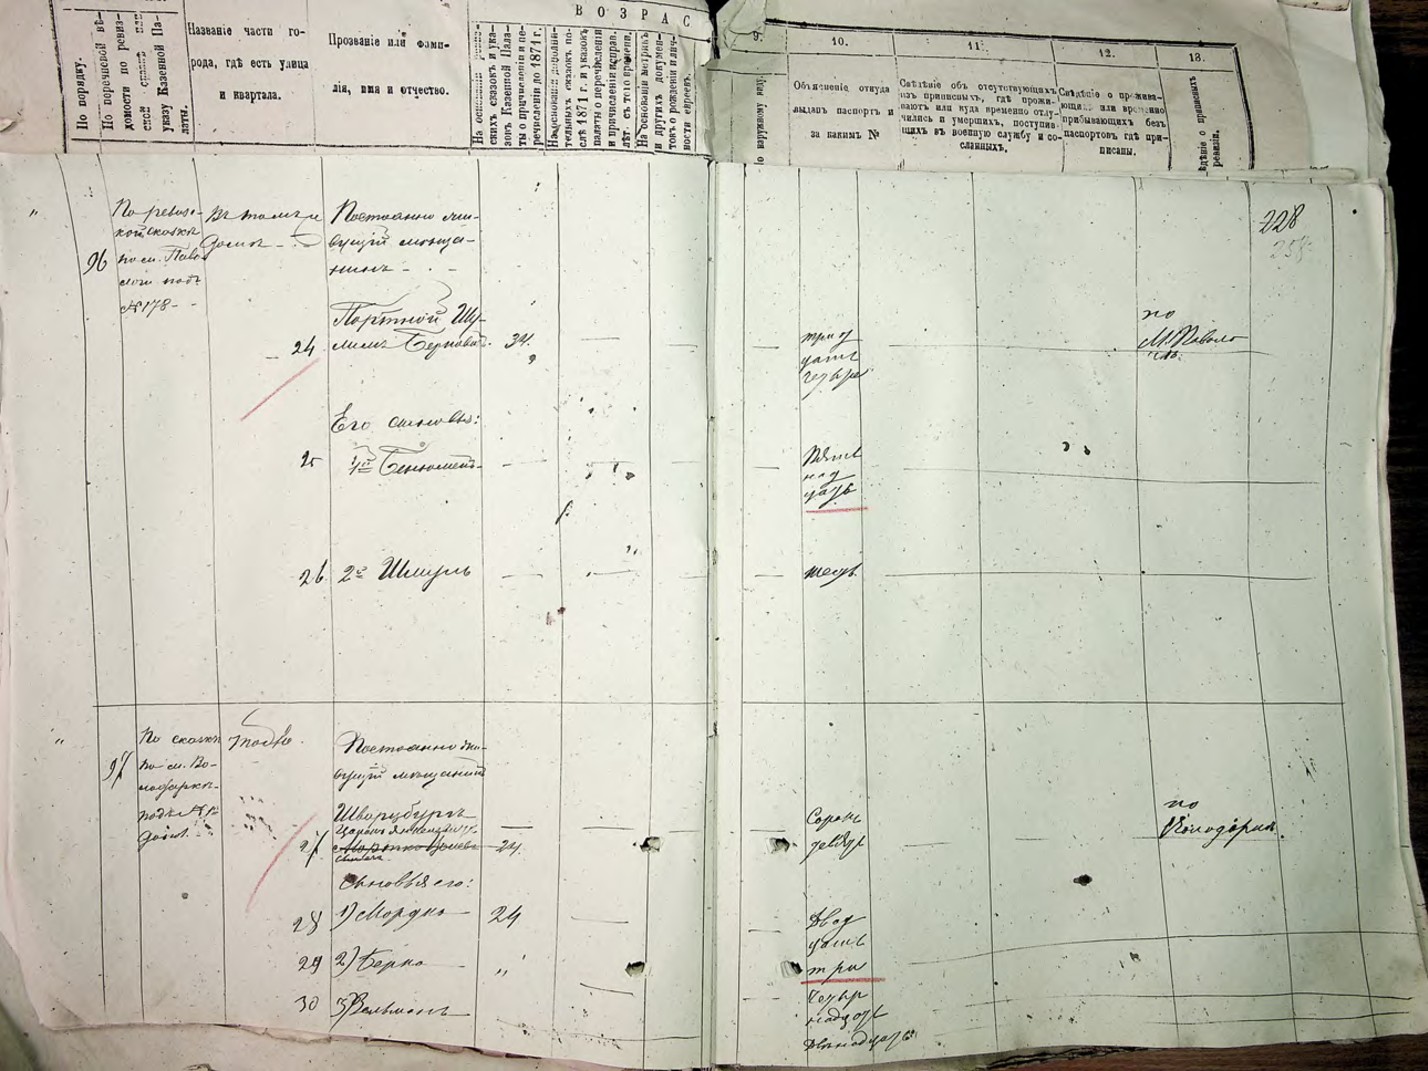 ВОЗРАС
По порядку.
По поречневой вѣ-
домости по ревиз-
ской сказкѣ или
указу Казенной Па-
латы.
Названіе части го-
рода, гдѣ есть улица
и квартала.
Прозваніе или фами-
лія, имя и отчество.
На основаніи ревиз-
скихъ сказокъ и ука-
зовъ Казенной Пала-
ты о причисленіи и пе-
речисленіи до 1871 г.
На основаніи дополни-
тельныхъ сказокъ по-
слѣ 1871 г. и указовъ
палаты о перечисленіи
и причисленіи исправ.
лѣт. съ того времени.
На основаніи метрик
и другихъ докумен-
товъ о рожденіи и лич-
ности евреевъ.
9.
по наружному виду.
10.
Объясненіе откуда
выданъ паспортъ и
за какимъ №
11.
Свѣдѣніе объ отсутствующихъ
изъ приписныхъ, гдѣ прожи-
ваютъ или куда временно отлу-
чились и умершихъ, поступив-
щихъ въ военную службу и со-
сланныхъ.
12.
Свѣдѣніе о прожива-
ющихъ или временно
прибывающихъ безъ
паспортовъ гдѣ при-
писаны.
13.
Свѣдѣніе о приписныхъ
ревизіи.
228
258
96
По ревиз-
кой сказкѣ
по м. Паво
лочи подъ
№ 178
Въ томъ же
домѣ
Постоянно жи-
вущій мѣща-
нинъ
24
Портной Шу-
лимъ Берковъ
34.
трид
цать
четыре
по
М. Паволо
чѣ.
Его сыновья:
25
1й Беньоменъ
Пять
над
цать
26
2й Шмуль
шесть
97
По сказкѣ
по м. Во-
лодаркѣ
подъ №
тоже
Постоянно жи-
вущій мѣщанинъ
27
Шварцбургъ
24.
Сорокъ
девять
по
Володаркѣ.
Сыновья его:
28
1) Мордко
24
Двад
цать
три
29
2) Берко
„
Четыр
надцать
30
3) Вельманъ
двѣнадцать